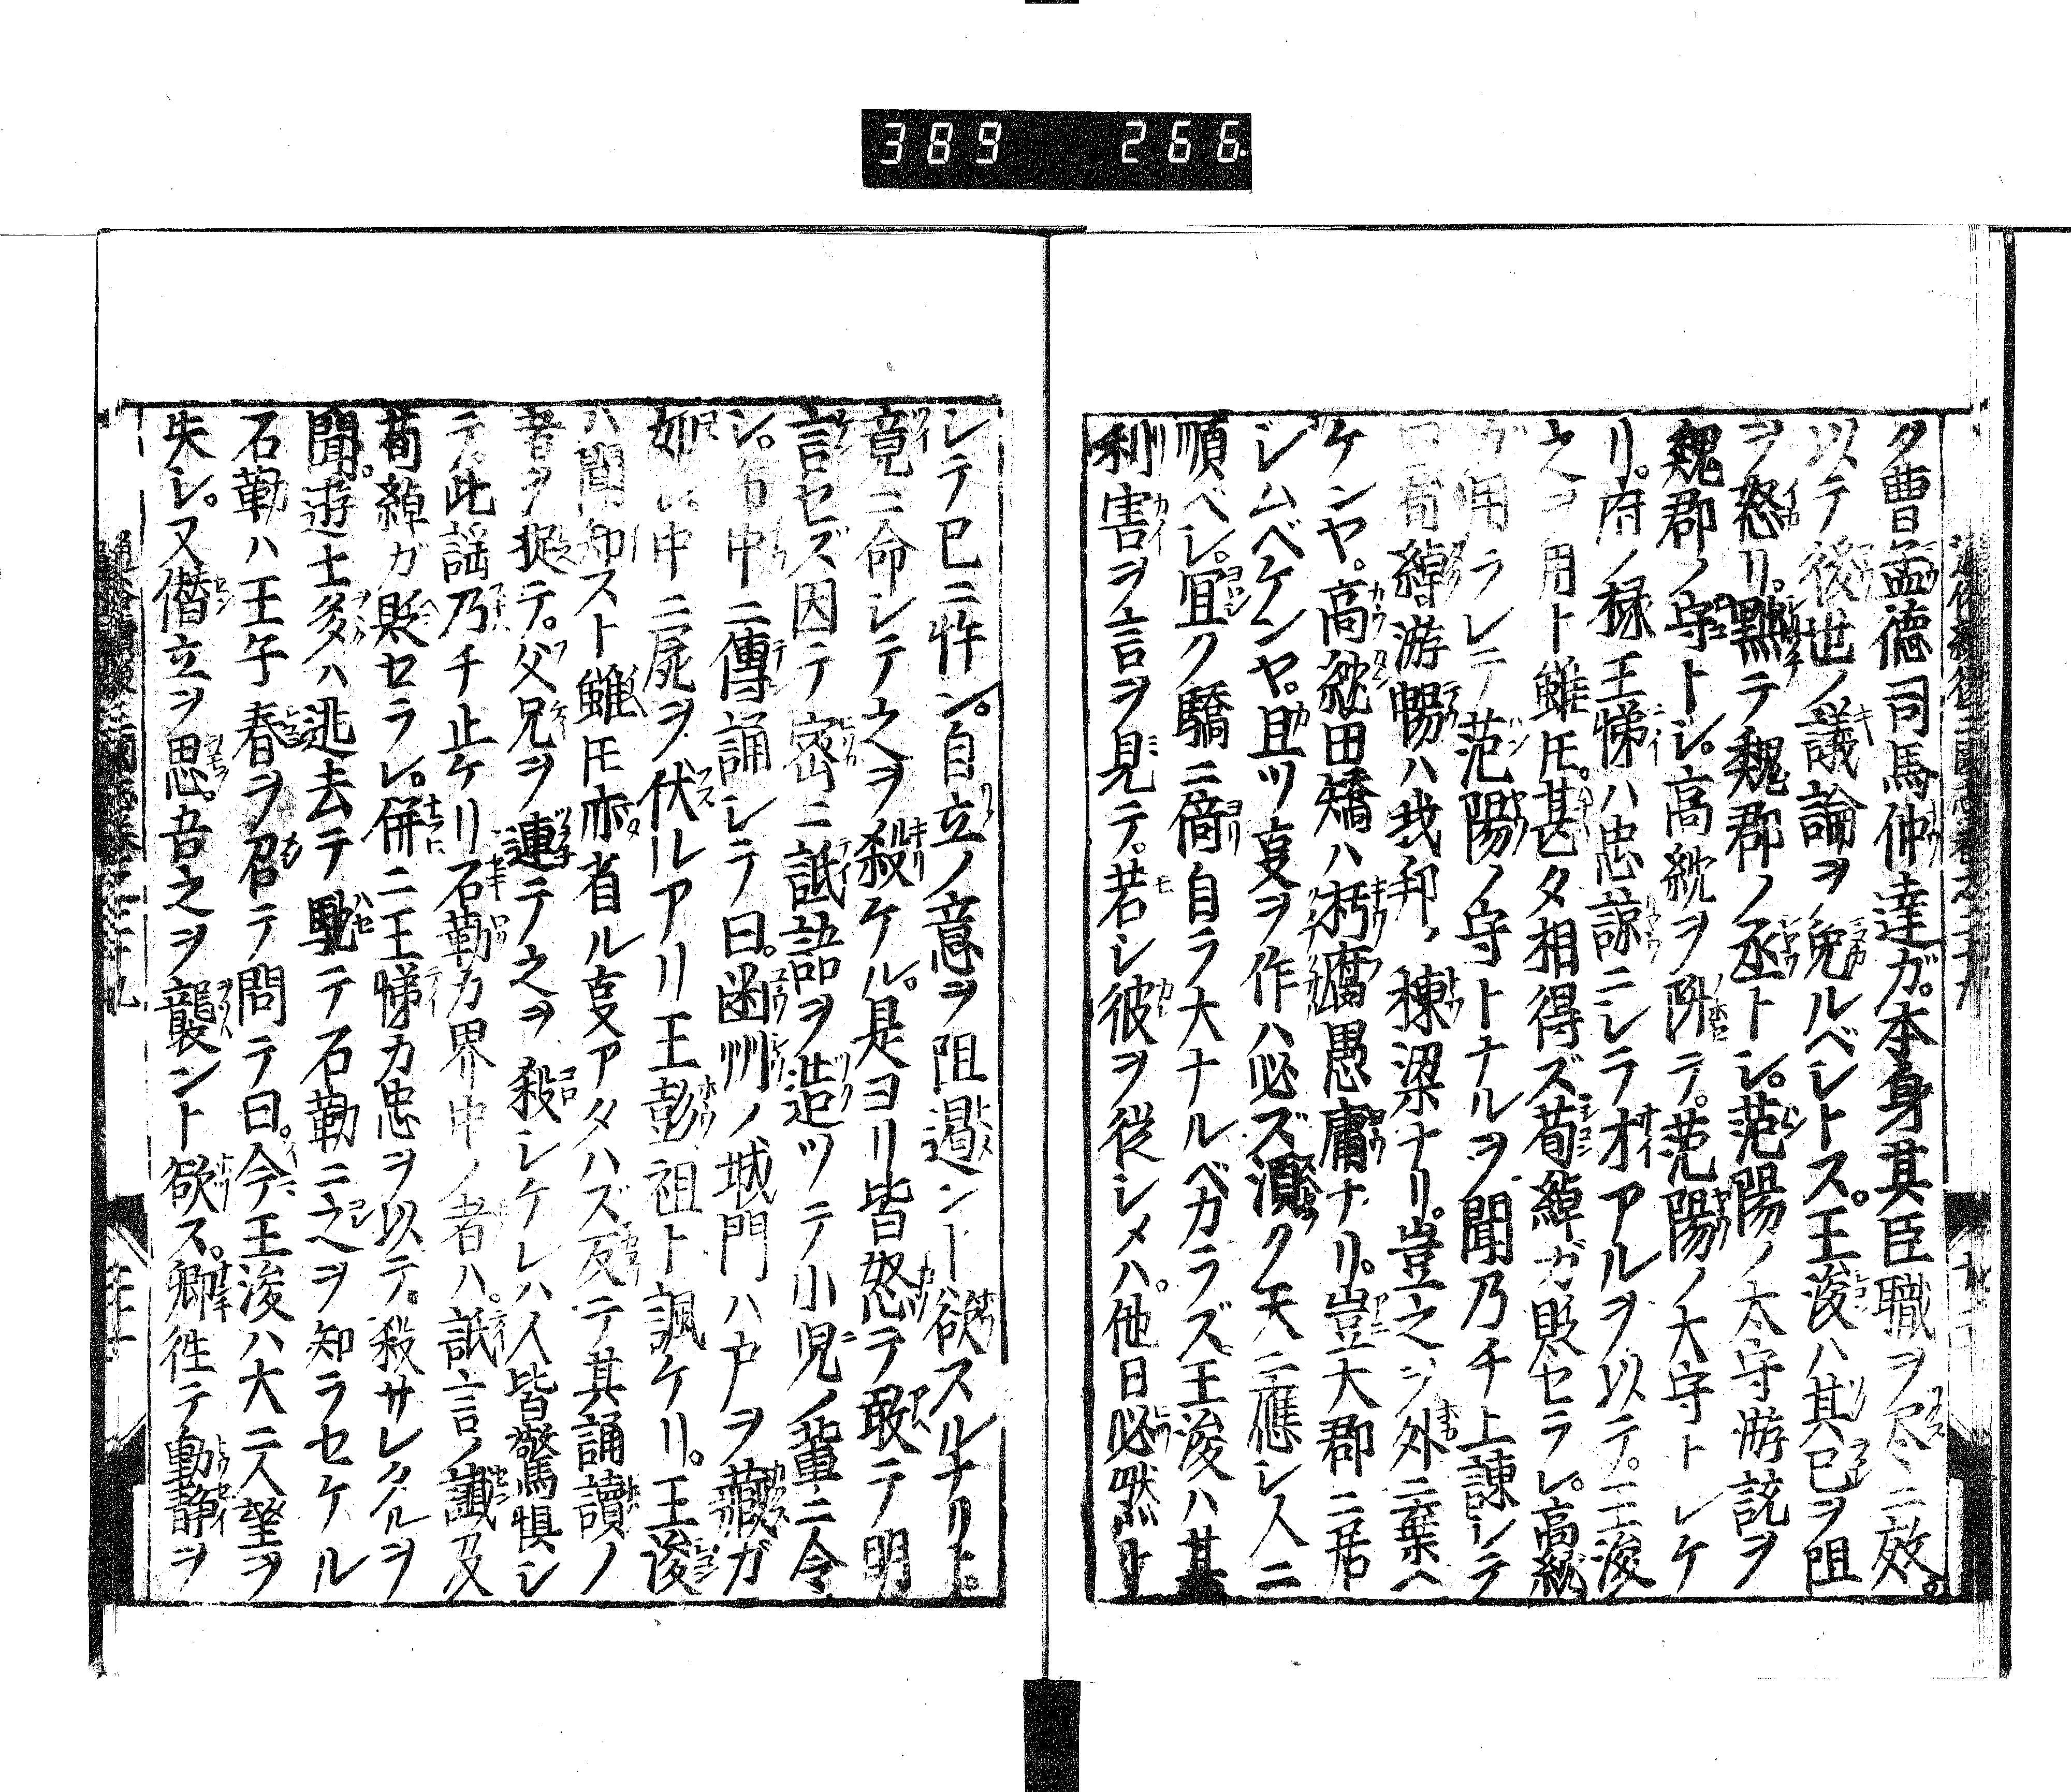 389 266
ク曹孟徳司馬仲達ガ。本身其臣職ヲ尽ニ效。
以テ後世ノ議論ヲ免ルベシトス。王浚ハ其已ヲ阻
ヲ怒リ。黙テ魏郡ノ丞トシ。范陽ノ太守游読ヲ
魏郡ノ守トシ。高紞ヲ陞テ。范陽ノ大守トレケ
リ。府ノ椽王悌ハ忠諒ニシラ才アルヲ以テ。王浚
之ヲ用ト雖𪜈。甚タ相得ズ荀綽ガ貶セラレ。高紞
ガ用ラレテ范陽ノ守トナルヲ聞乃チ上諌シテ
曰荀綽。游暢ハ我邦ノ棟梁ナリ。豈之ヲ外ニ棄ヘ
ケンヤ。高紞田矯ハ朽腐愚庸ナリ。豈大郡ニ居
シムベケンヤ。且ツ事ヲ作ハ必ズ須ク天ニ應シ人ニ
順ベシ。宜ク驕ニ倚自ラ大ナルベカラズ。王浚ハ其
利害ヲ言ヲ見テ。若シ彼ヲ従シメハ。他日必
シテ已ニ忤ン。自立ノ意ヲ阻遏ント欲スルナリト。
竟ニ命シテ之ヲ殺ケル。是ヨリ皆怒テ敢テ明
言セズ因テ密ニ詆語ヲ造ツテ小児ノ輩ニ令
シ。市中ニ傳誦シテ曰。幽州ノ城門ハ戸ヲ藏ガ
如シ中ニ屍ヲ伏ルアリ王彭祖ト諷ケリ。王浚
ハ聞知スト雖𪜈亦省ル事アタハズ反テ其誦讀ノ
者ヲ捉テ。父兄ヲ連テ之ヲ殺シケレハ人皆驚惧シ
テ。此謡乃チ止ケリ石勒乃界中ノ者ハ。詆言ノ讖及
荀綽ガ貶セラレ。併ニ王悌カ忠ヲ以テ。殺サレタルヲ
聞。遊士多ハ逃去テ馳テ石勒ニ之ヲ知ラセケル
石勒ハ王子春ヲ召テ問テ曰。今王浚ハ大ニ人望ヲ
失レ。又僭立ヲ思。吾之ヲ襲ント欲ス。卿徃テ動静ヲ